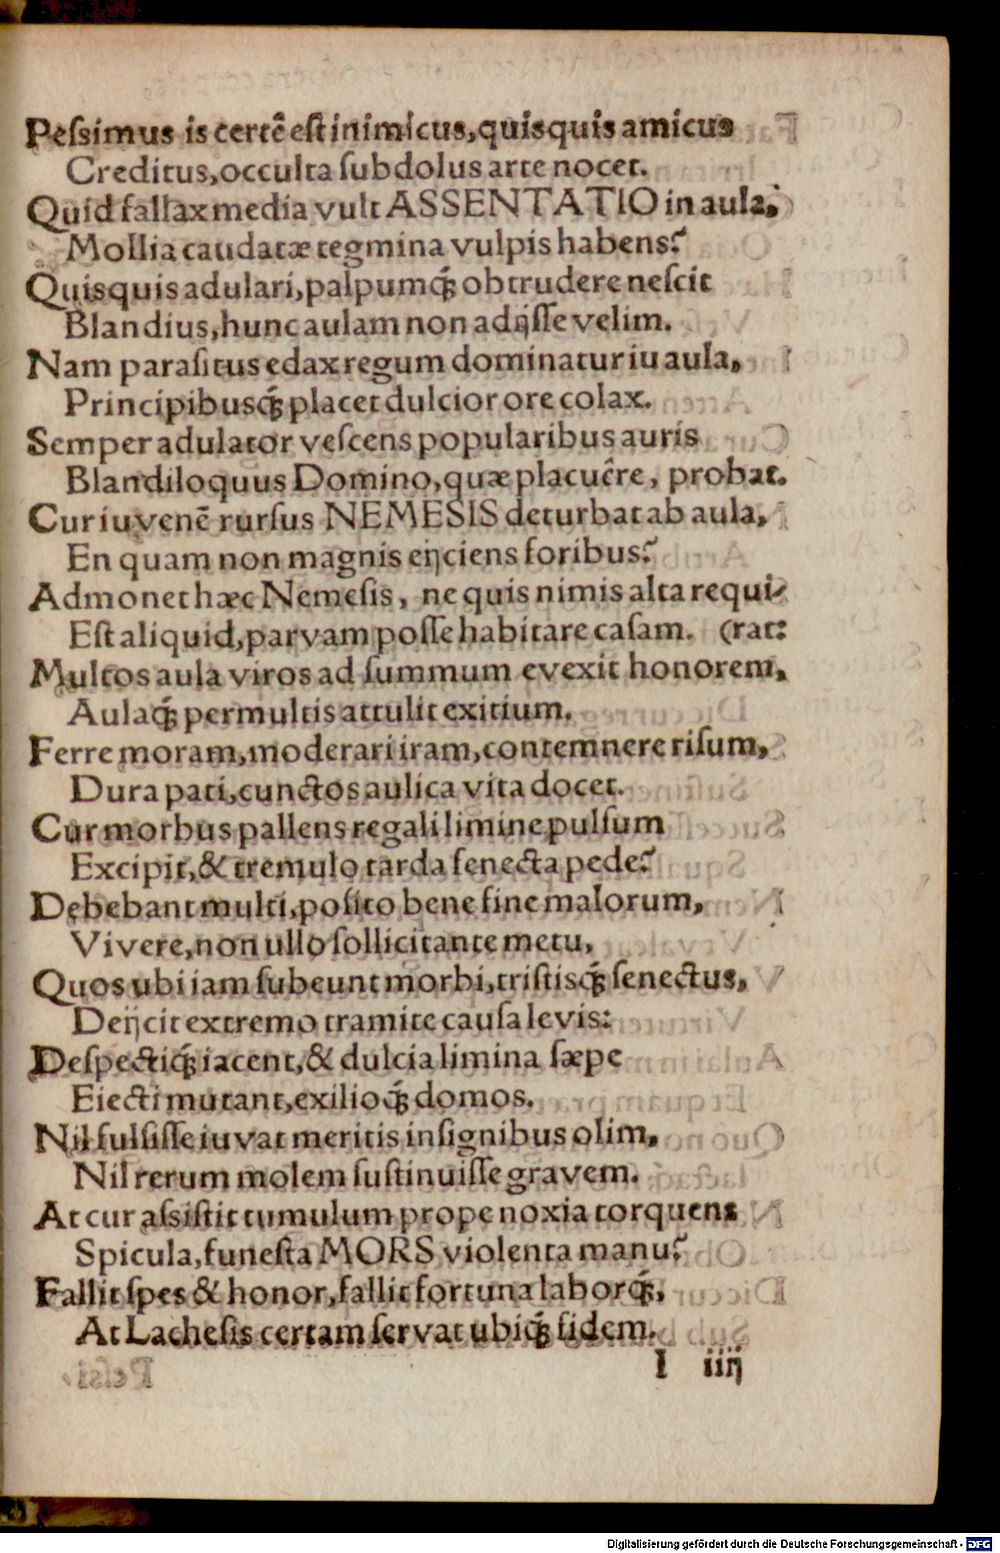 Peſsimus is certẽ eſt inimicus, quisquis amicus
Creditus, occulta ſubdolus arte nocet.
Quid fallax media vult ASSENTATIO in aula,
Mollia caudatæ tegmina vulpis habens?
Quisquis adulari, palpumq́ꝫ obtrudere neſcit
Blandius, hunc aulam non adijſſe velim.
Nam paraſitus edax regum dominatur iu aula,
Principibusq́ꝫ placet dulcior ore colax.
Semper adulator veſcens popularibus auris
Blandiloquus Domino, quæ placuêre, probat.
Cur iuvenẽ rurſus NEMESIS deturbat ab aula,
En quam non magnis eijciens foribus?
Admonet hæc Nemeſis, ne quis nimis alta requi-
Eſt aliquid, parvam poſſe habitare caſam. (rat:
Multos aula viros ad ſummum evexit honorem,
Aulaq́ꝫ permultis attulit exitium.
Ferre moram, moderari iram, contemnere riſum,
Dura pati, cunctos aulica vita docet.
Cur morbus pallens regali limine pulſum
Excipit, & tremulo tarda ſenecta pede?
Debebant multi, poſito bene fine malorum,
Vivere, non ullo ſollicitante metu,
Quos ubi iam ſubeunt morbi, triſtisq́ꝫ ſenectus,
Deijcit extremo tramite cauſa levis:
Deſpectiq́ꝫ iacent, & dulcia limina ſæpe
Eiecti mutant, exilioq́ꝫ domos.
Nil fulſiſſe iuvat meritis inſignibus olim,
Nil rerum molem ſuſtinuiſſe gravem.
At cur aſsiſtit tumulum prope noxia torquens
Spicula, funeſta MORS violenta manu?
Fallit ſpes & honor, fallit fortuna laborq́ꝫ,
At Lacheſis certam ſervat ubiq́ꝫ fidem.
I iiij
Digitalisierung gefördert durch die Deutsche Forschungsgemeinschaft - DFG